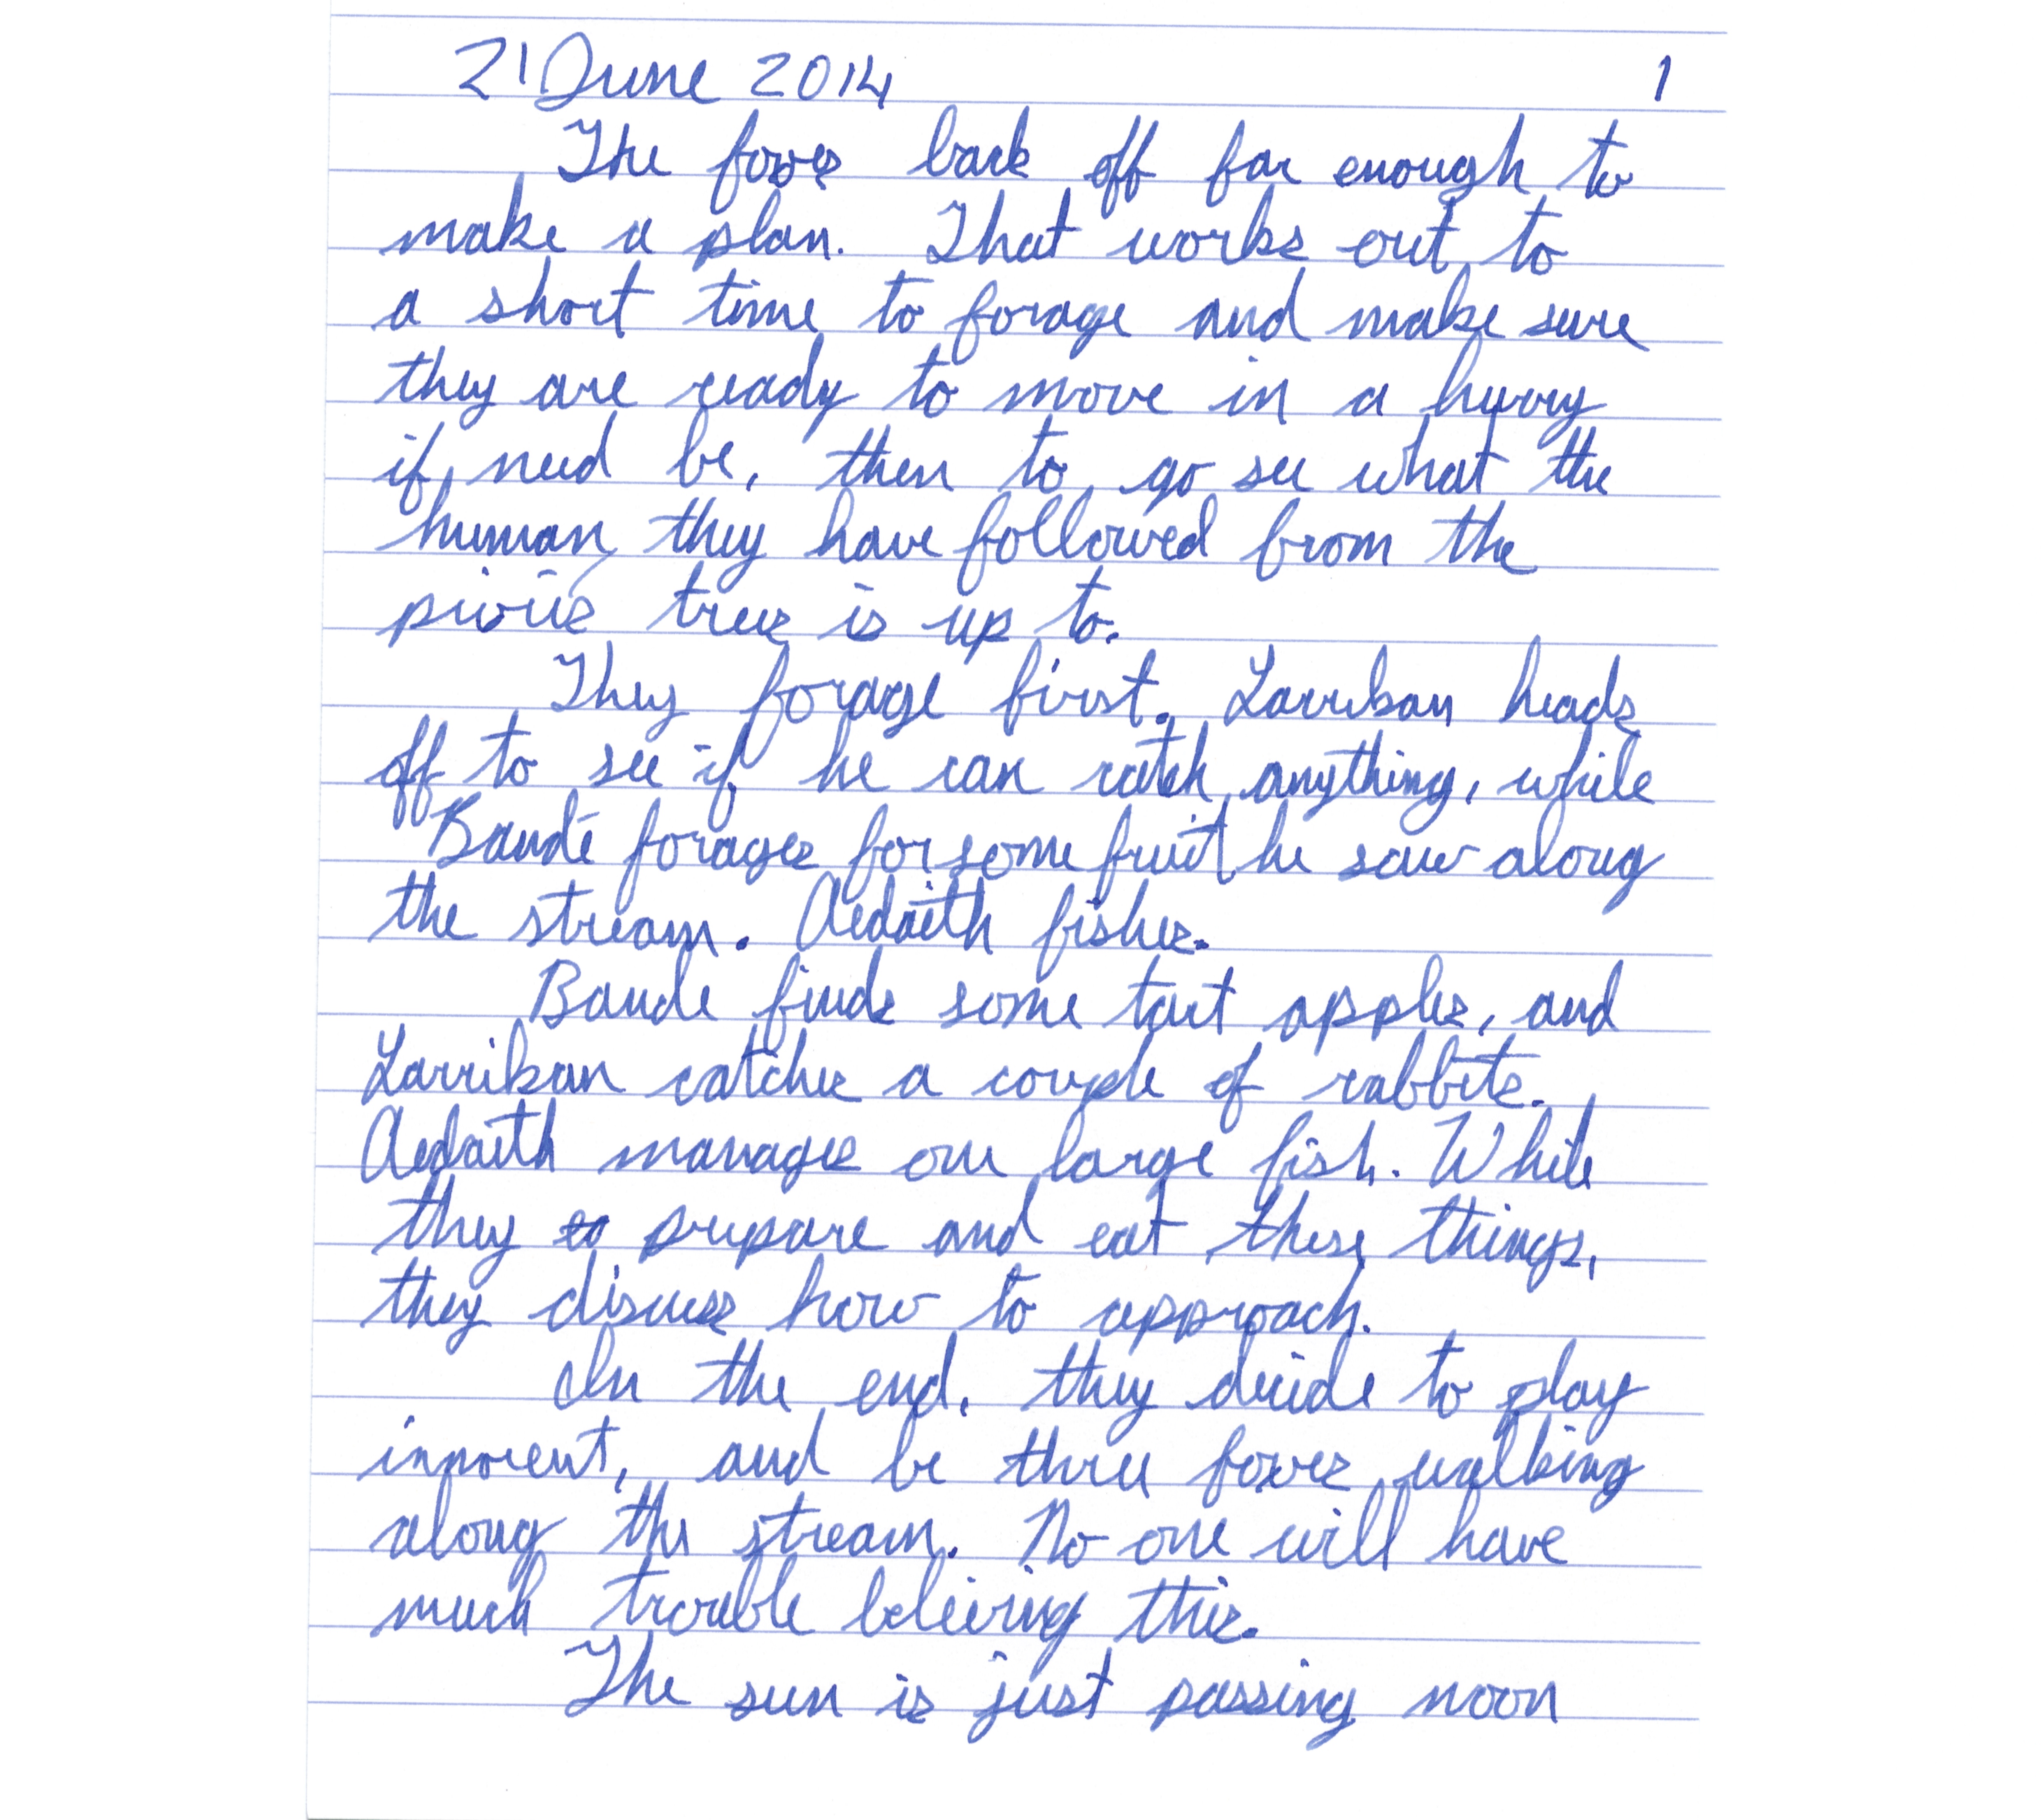 21 June 2014 1
The foxes back off far enough to
make a plan. That works out to
a short time to forage and make sure
they are ready to move in a hurry
if need be, then to go see what the
human they have followed from the
pixies tree is up to.
They forage first. Larrikan heads
off to see if he can catch anything, while
Bandé forages for some fruit he saw along
the stream. Aedaith fishes.
Bandé finds some tart apples, and
Larrikan catches a couple of rabbits.
Aedaith manages one large fish. While
they prepare and eat these things,
they discuss how to approach.
In the end, they decide to play
innocent, and be three foxes walking
along the stream. No one will have
much trouble believing this.
The sun is just passing noon